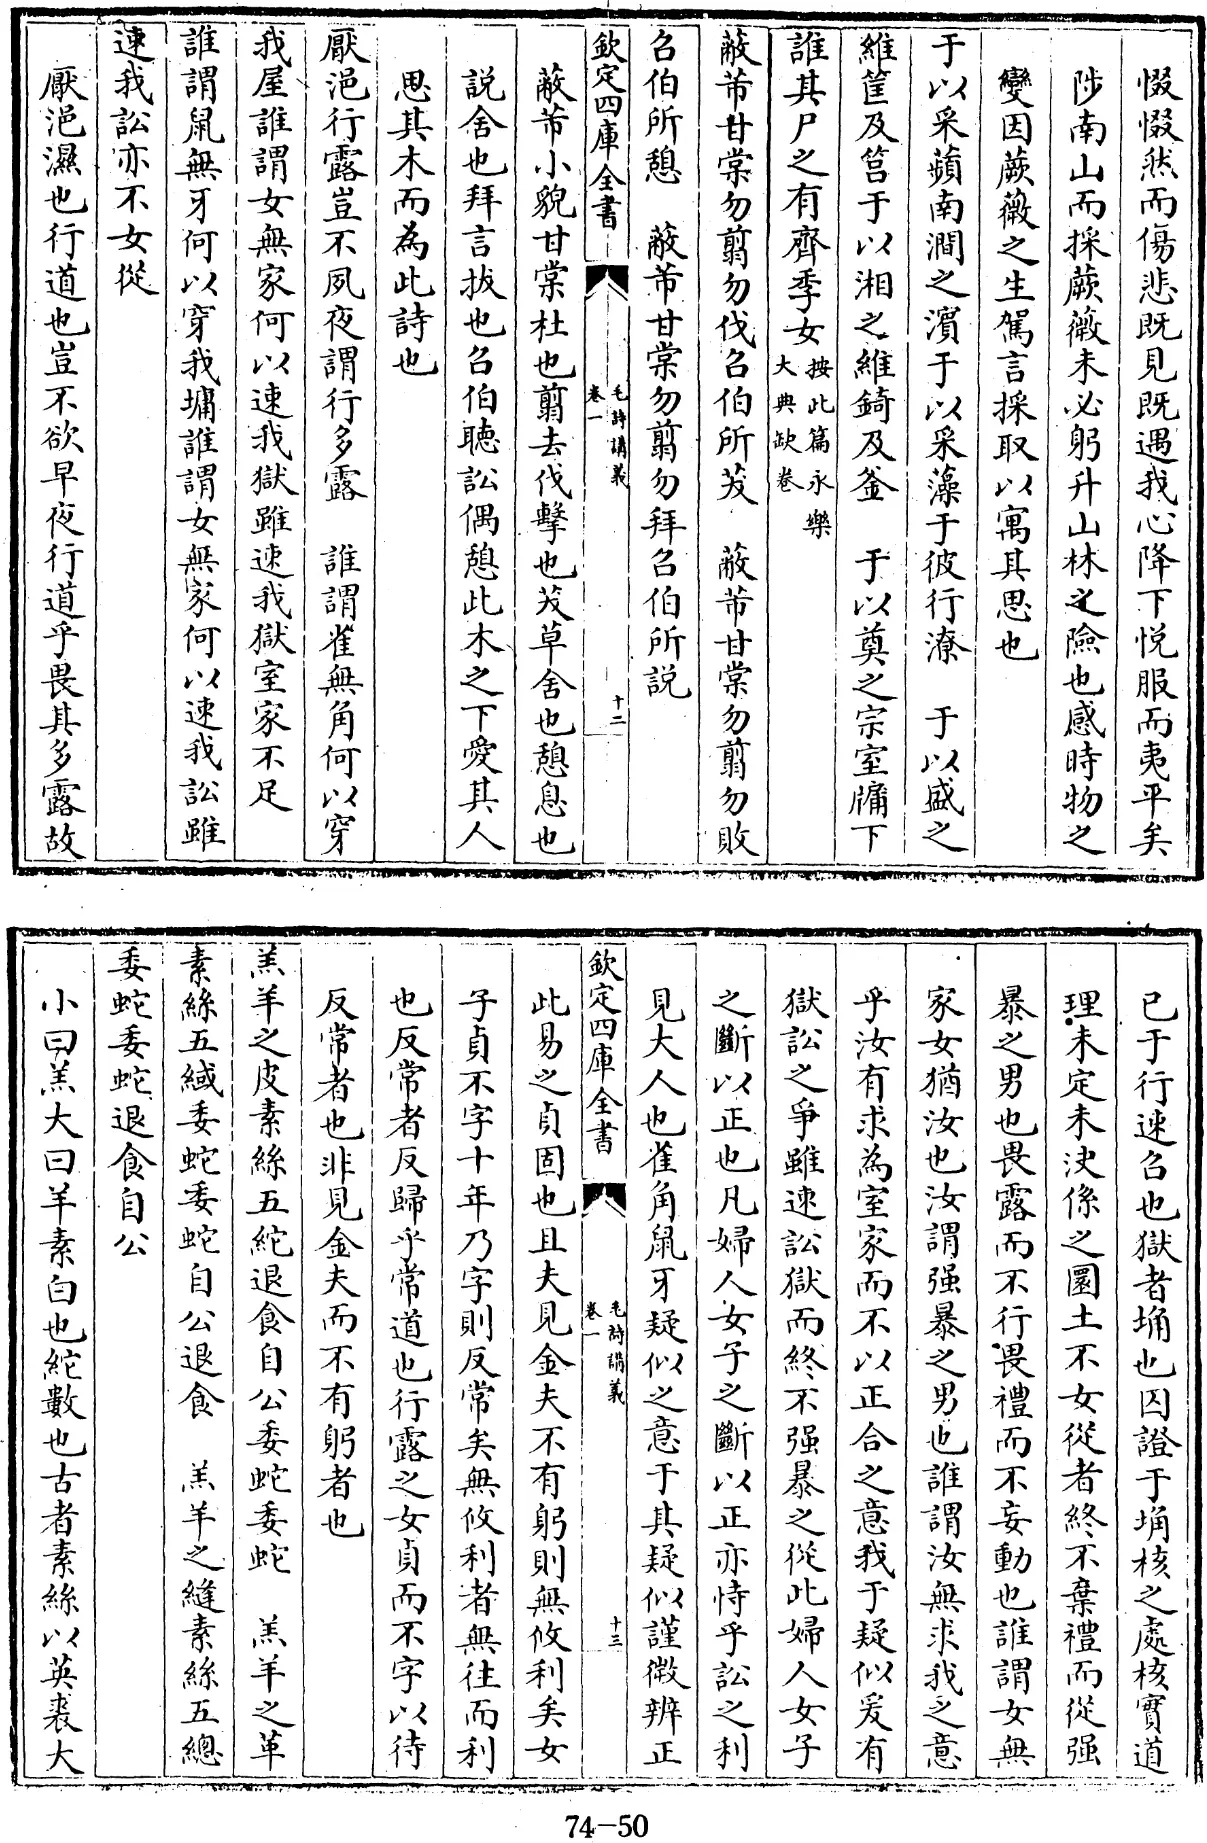 惙惙然而傷悲既見既遇我心降下悅服而夷平矣
陟南山而採蕨薇未必躬升山林之險也感時物之
變因蕨薇之生駕言採取以寓其思也
于以采蘋南澗之濱于以采藻于彼行潦　于以盛之
維筐及筥于以湘之維錡及釜　于以奠之宗室牖下
誰其尸之有齊季女按此篇永樂
大典缺卷
蔽芾甘棠勿翦勿伐召伯所茇　蔽芾甘棠勿翦勿敗
召伯所憩　蔽芾甘棠勿翦勿拜召伯所説
欽定四庫全書
毛詩講義
卷一
十二
蔽芾小貌甘棠杜也翦去伐擊也茇草舍也憩息也
説舍也拜言拔也召伯聽訟偶憩此木之下愛其人
思其木而為此詩也
厭浥行露豈不夙夜謂行多露　誰謂雀無角何以穿
我屋誰謂女無家何以速我獄雖速我獄室家不足
誰謂鼠無牙何以穿我墉誰謂女無家何以速我訟雖
速我訟亦不女從
厭浥濕也行道也豈不欲早夜行道乎畏其多露故
已于行速召也獄者埆也囚證于埆核之處核實道
理未定未决係之圜土不女從者終不棄禮而從强
暴之男也畏露而不行畏禮而不妄動也誰謂女無
家女猶汝也汝謂强暴之男也誰謂汝無求我之意
乎汝有求為室家而不以正合之意我于疑似爰有
獄訟之爭雖速訟獄而終不强暴之從此婦人女子
之斷以正也凡婦人女子之斷以正亦恃乎訟之利
見大人也雀角鼠牙疑似之意于其疑似謹微辨正
欽定四庫全書
毛詩講義
卷一
十三
此易之貞固也且夫見金夫不有躬則無攸利矣女
子貞不字十年乃字則反常矣無攸利者無往而利
也反常者反歸乎常道也行露之女貞而不字以待
反常者也非見金夫而不有躬者也
羔羊之皮素絲五紽退食自公委蛇委蛇　羔羊之革
素絲五緎委蛇委蛇自公退食　羔羊之縫素絲五總
委蛇委蛇退食自公
小曰羔大曰羊素白也紽數也古者素絲以英裘大
74-50